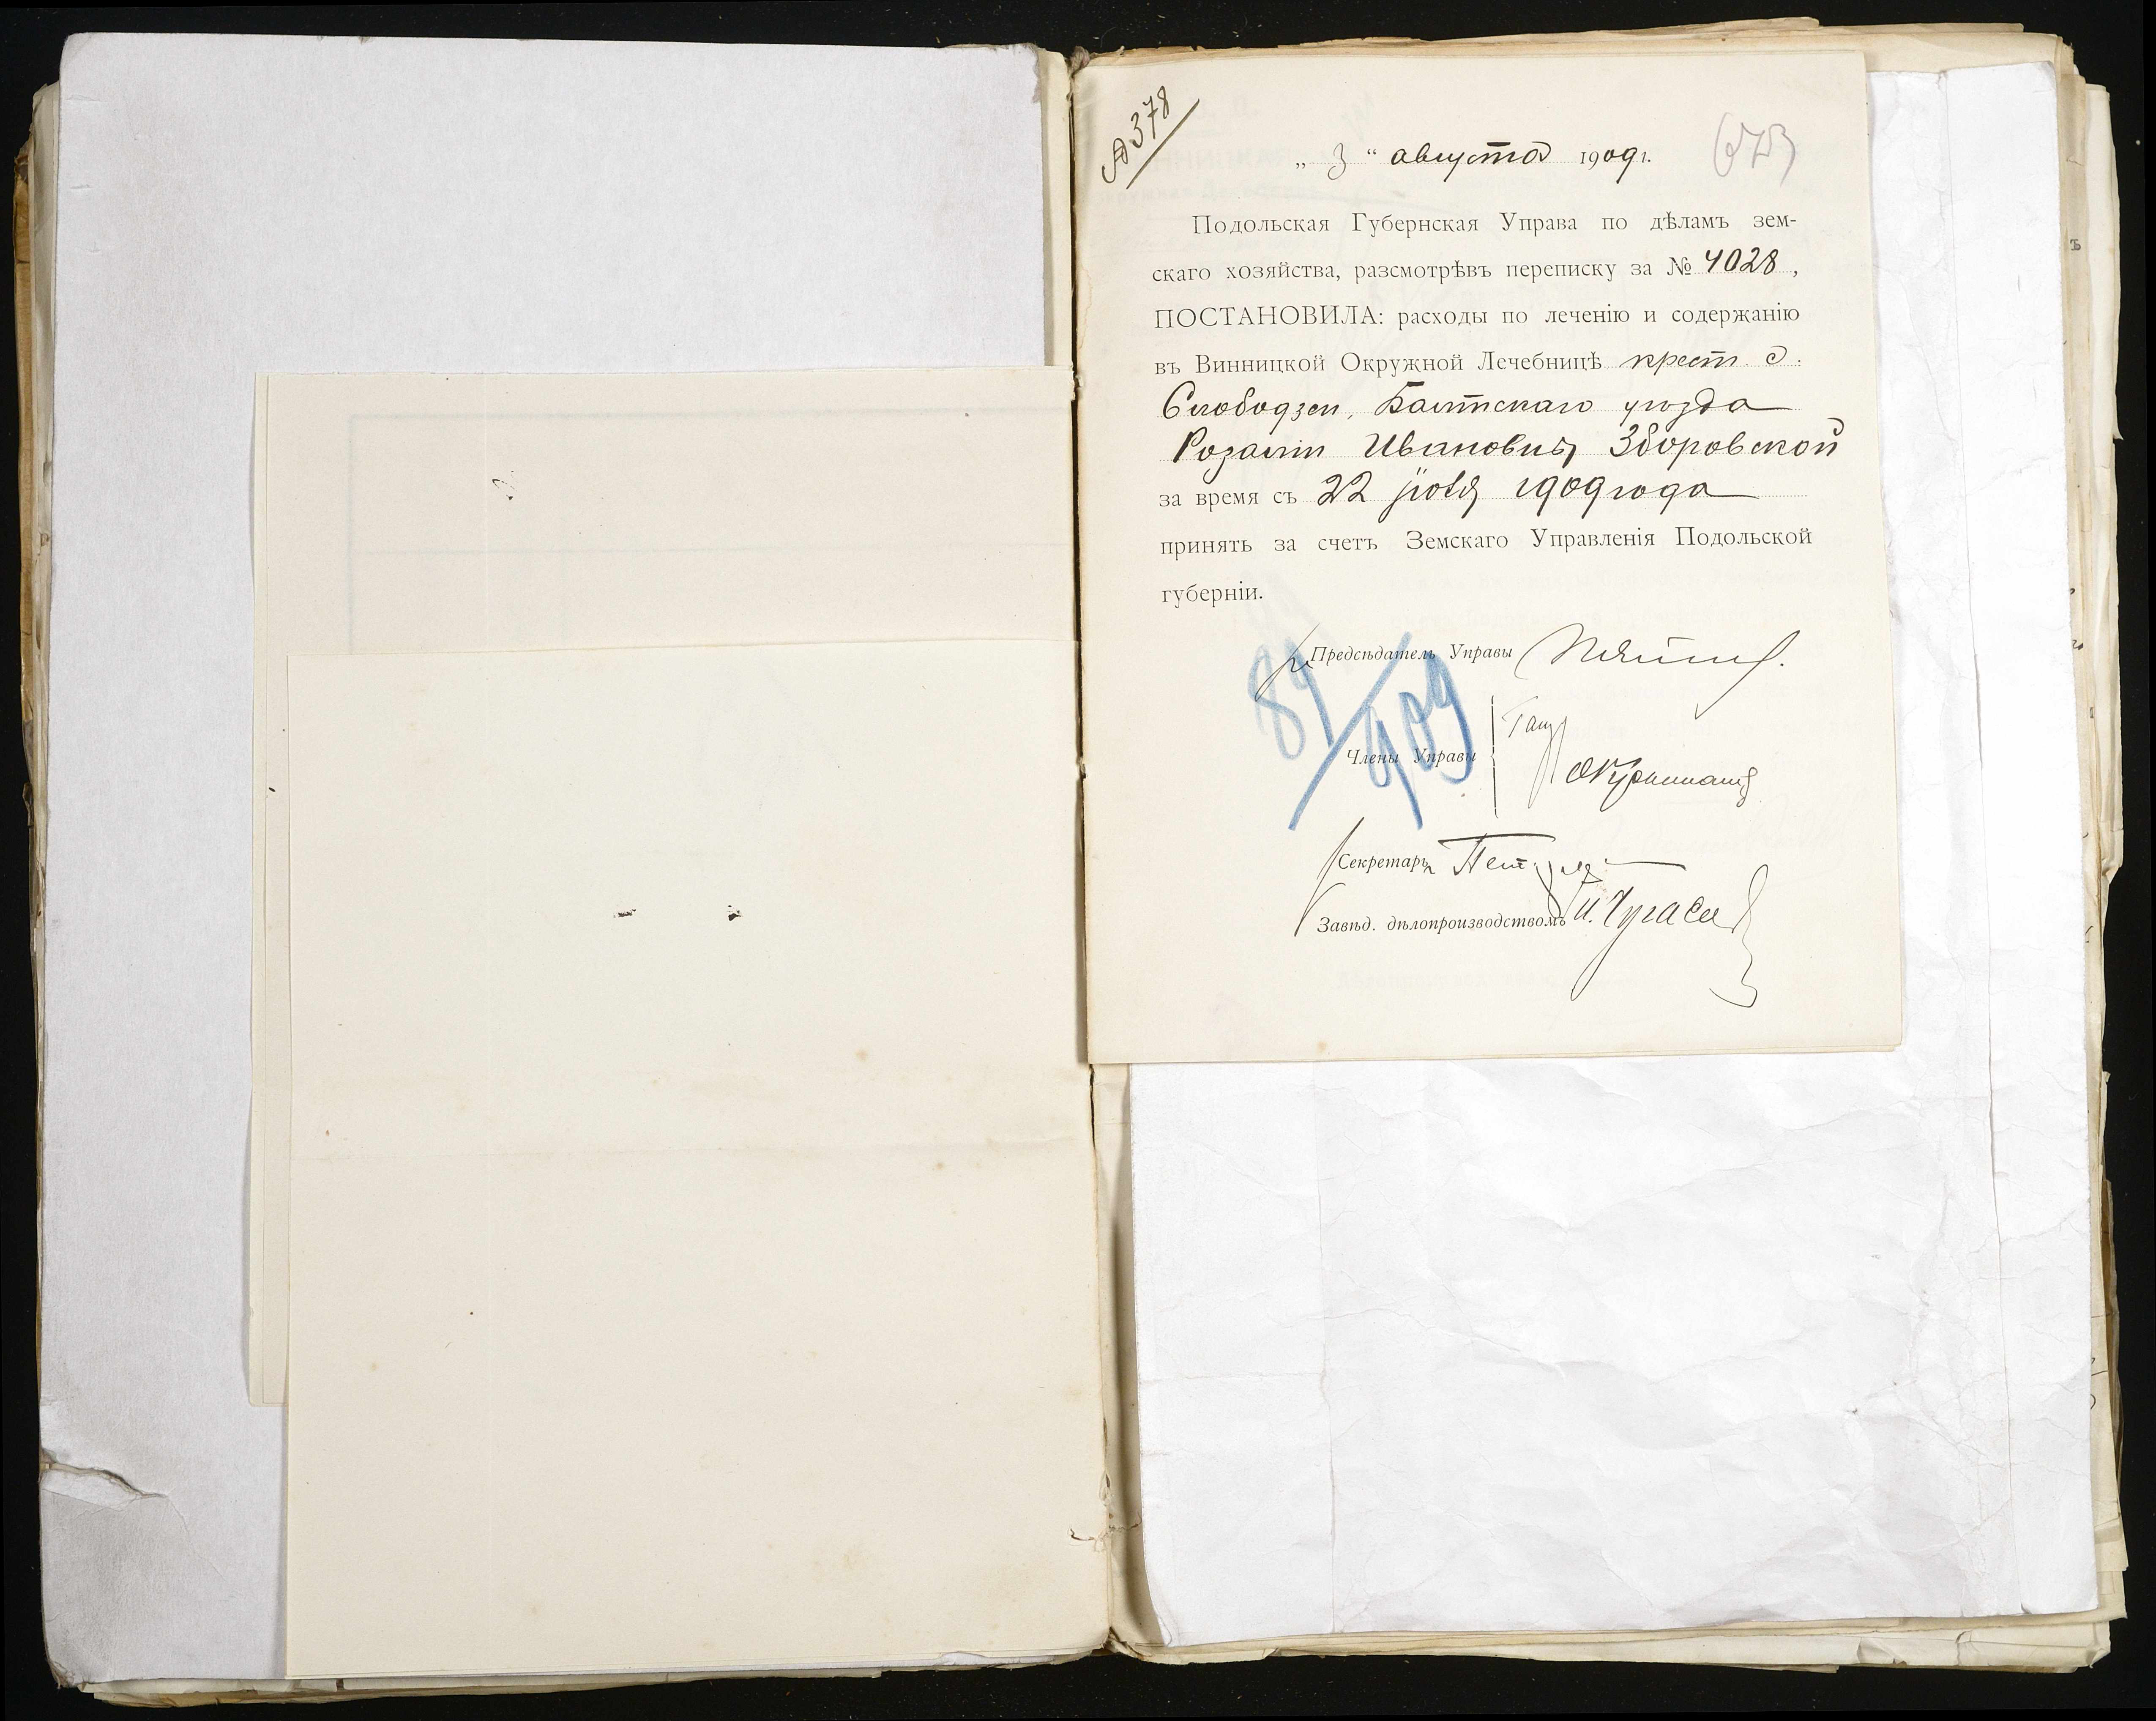 № 378
„ 3 “ августа 1909 г.
Подольская Губернская Управа по дѣламъ зем-
скаго хозяйства, разсмотрѣвъ переписку за № 4028,
ПОСТАНОВИЛА: расходы по леченію и содержанію
въ Винницкой Окружной Лечебницѣ крест. д.
Слободзеи, Балтскаго уѣзда
Розаліи Ивановны Зборовской
за время съ 22 іюля 1909 года
принять за счетъ Земскаго Управленія Подольской
губерніи.
Предсѣдатель Управы
89/909
Члены Управы
Секретарь
Завѣд. дѣлопроизводствомъ